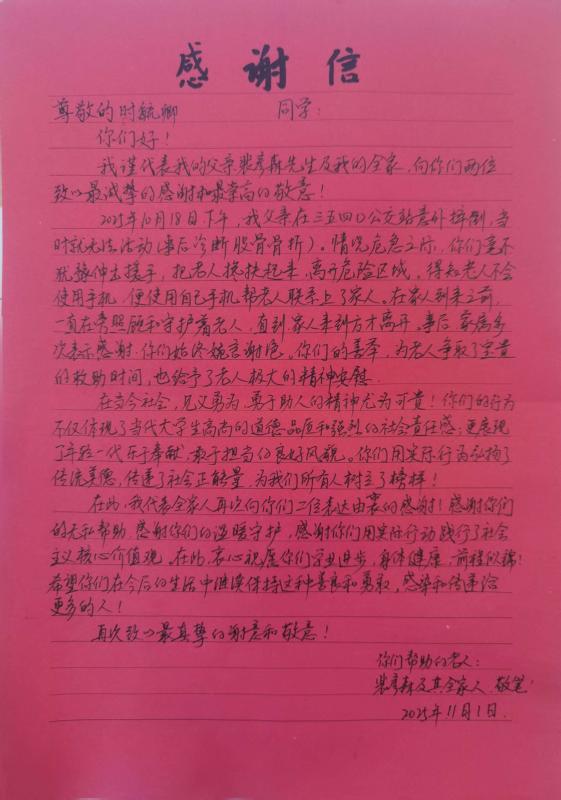 感谢信
尊敬的时毓卿 同学:
你们好!
我谨代表我的父亲裴彦森先生及我的全家,向你们两位
致以最诚挚的感谢和最崇高的敬意!
2025年10月18日下午,我父亲在三五四〇公交站意外摔倒,当
时就无法活动(事后诊断股骨骨折)。情况危急之际,你们毫不
犹豫伸出援手,把老人搀扶起来,离开危险区域。得知老人不会
使用手机,便使用自己手机帮老人联系上了家人。在家人到来之前,
一直在旁照顾和守护着老人,直到家人来到方才离开。事后,家属多
次表示感谢,你们始终婉言谢绝。你们的善举,为老人争取了宝贵
的救助时间,也给予了老人极大的精神安慰.
在当今社会,见义勇为,勇于助人的精神尤为可贵!你们的行为
不仅体现了当代大学生高尚的道德品质和强烈的社会责任感;更展现
了年轻一代乐于奉献,敢于担当的良好风貌。你们用实际行为弘扬了
传统美德,传递了社会正能量,为我们所有人树立了榜样!
在此,我代表全家人再次向你们二位表达由衷的感谢!感谢你们
的无私帮助,感谢你们的温暖守护,感谢你们用实际行动践行了社会
主义核心价值观,在此,衷心祝愿你们学业进步,身体健康,前程似锦!
希望你们在今后的生活中继续保持这种善良和勇敢,感染和传递给
更多的人!
再次致以最真挚的谢意和敬意!
你们帮助的老人:
裴彦森及其全家人.敬笔
2025年11月1日.